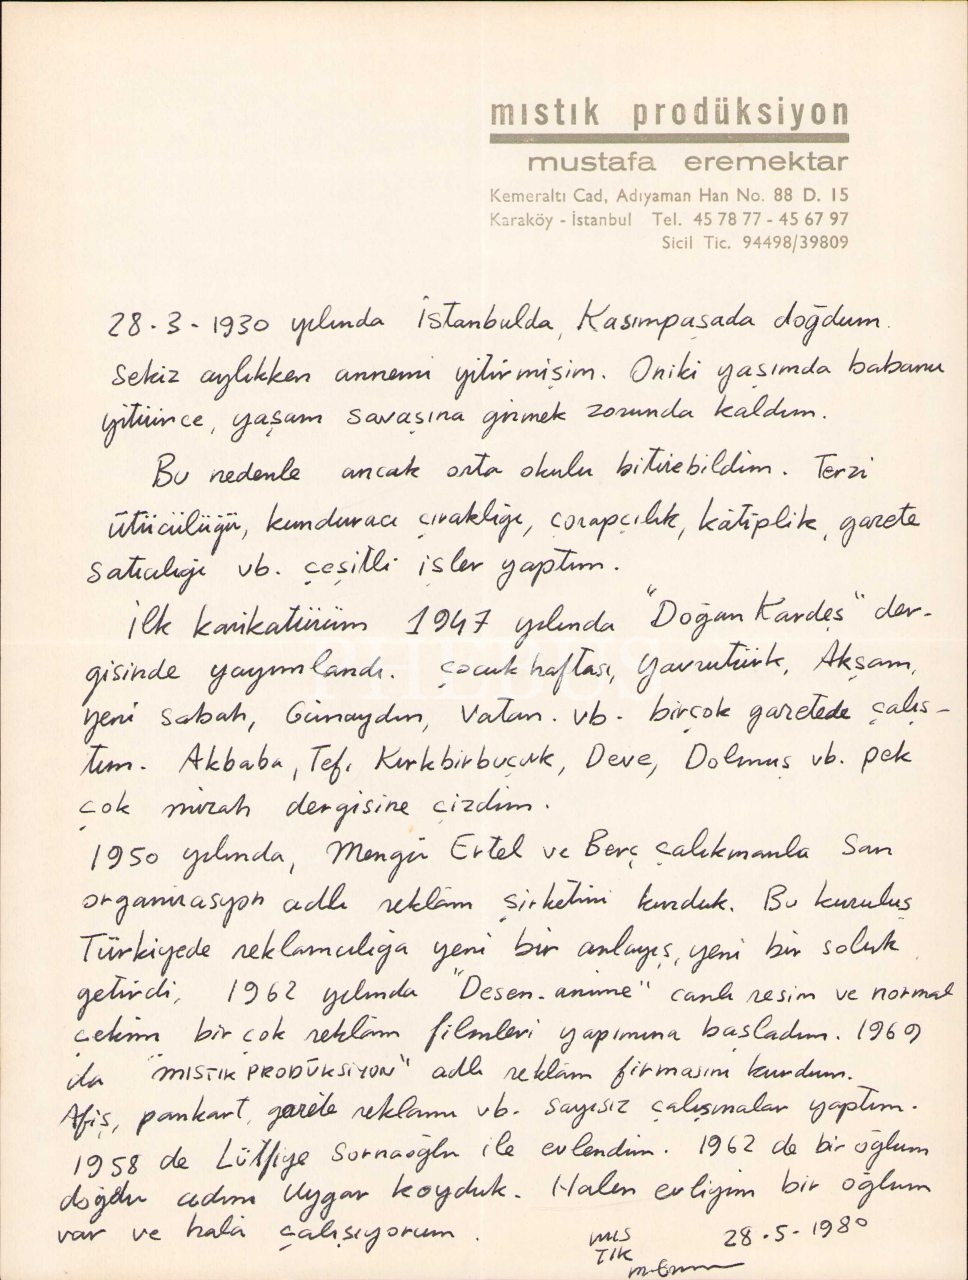 mıstık prodüksiyon
mustafa eremektar
Kemeraltı Cad, Adıyaman Han No. 88 D. 15
Karaköy - İstanbul Tel. 45 78 77 - 45 67 97
Sicil Tic. 94498/39809
28.3-1930 yılında İstanbulda, Kasımpaşada doğdum.
Sekiz aylıkken annemi yitirmişim. Oniki yaşımda babamı
yitirince, yaşam savaşına girmek zorunda kaldım.
Bu nedenle ancak orta okulu bitirebildim. Terzi
ütücülüğü, kunduracı çıraklığı, çorapçılık, kâtiplik, gazete
satıcılığı vb. çeşitli işler yaptım.
İlk karikatürüm 1947 yılında "Doğan Kardeş" der-
gisinde yayımlandı. Çocuk haftası, Yavrutürk, Akşam,
yeni sabah, Günaydın, Vatan. vb. birçok gazetede çalış-
tım. Akbaba, Tef, Kırkbirbuçuk, Deve, Dolmuş vb. pek
çok mizah dergisine çizdim.
1950 yılında, Mengü Ertel ve Berç Çalıkmanla San
organizasyon adlı reklâm şirketini kurduk. Bu kuruluş
Türkiyede reklamcılığa yeni bir anlayış, yeni bir soluk
getirdi, 1962 yılında "Desen-anime" canlı resim ve normal
çekim bir çok reklâm filmleri yapımına başladım. 1969
da "MISTIK PRODÜKSİYON" adlı reklâm firmasını kurdum.
Afiş, pankart, gazete reklamı vb. sayısız çalışmalar yaptım.
1958 de Lütfiye Sornaoğlu ile evlendim. 1962 de bir oğlum
doğdu adını Uygar koyduk. Halen evliyim bir oğlum
var ve hala çalışıyorum.
MIS
TIK
28.5-1980